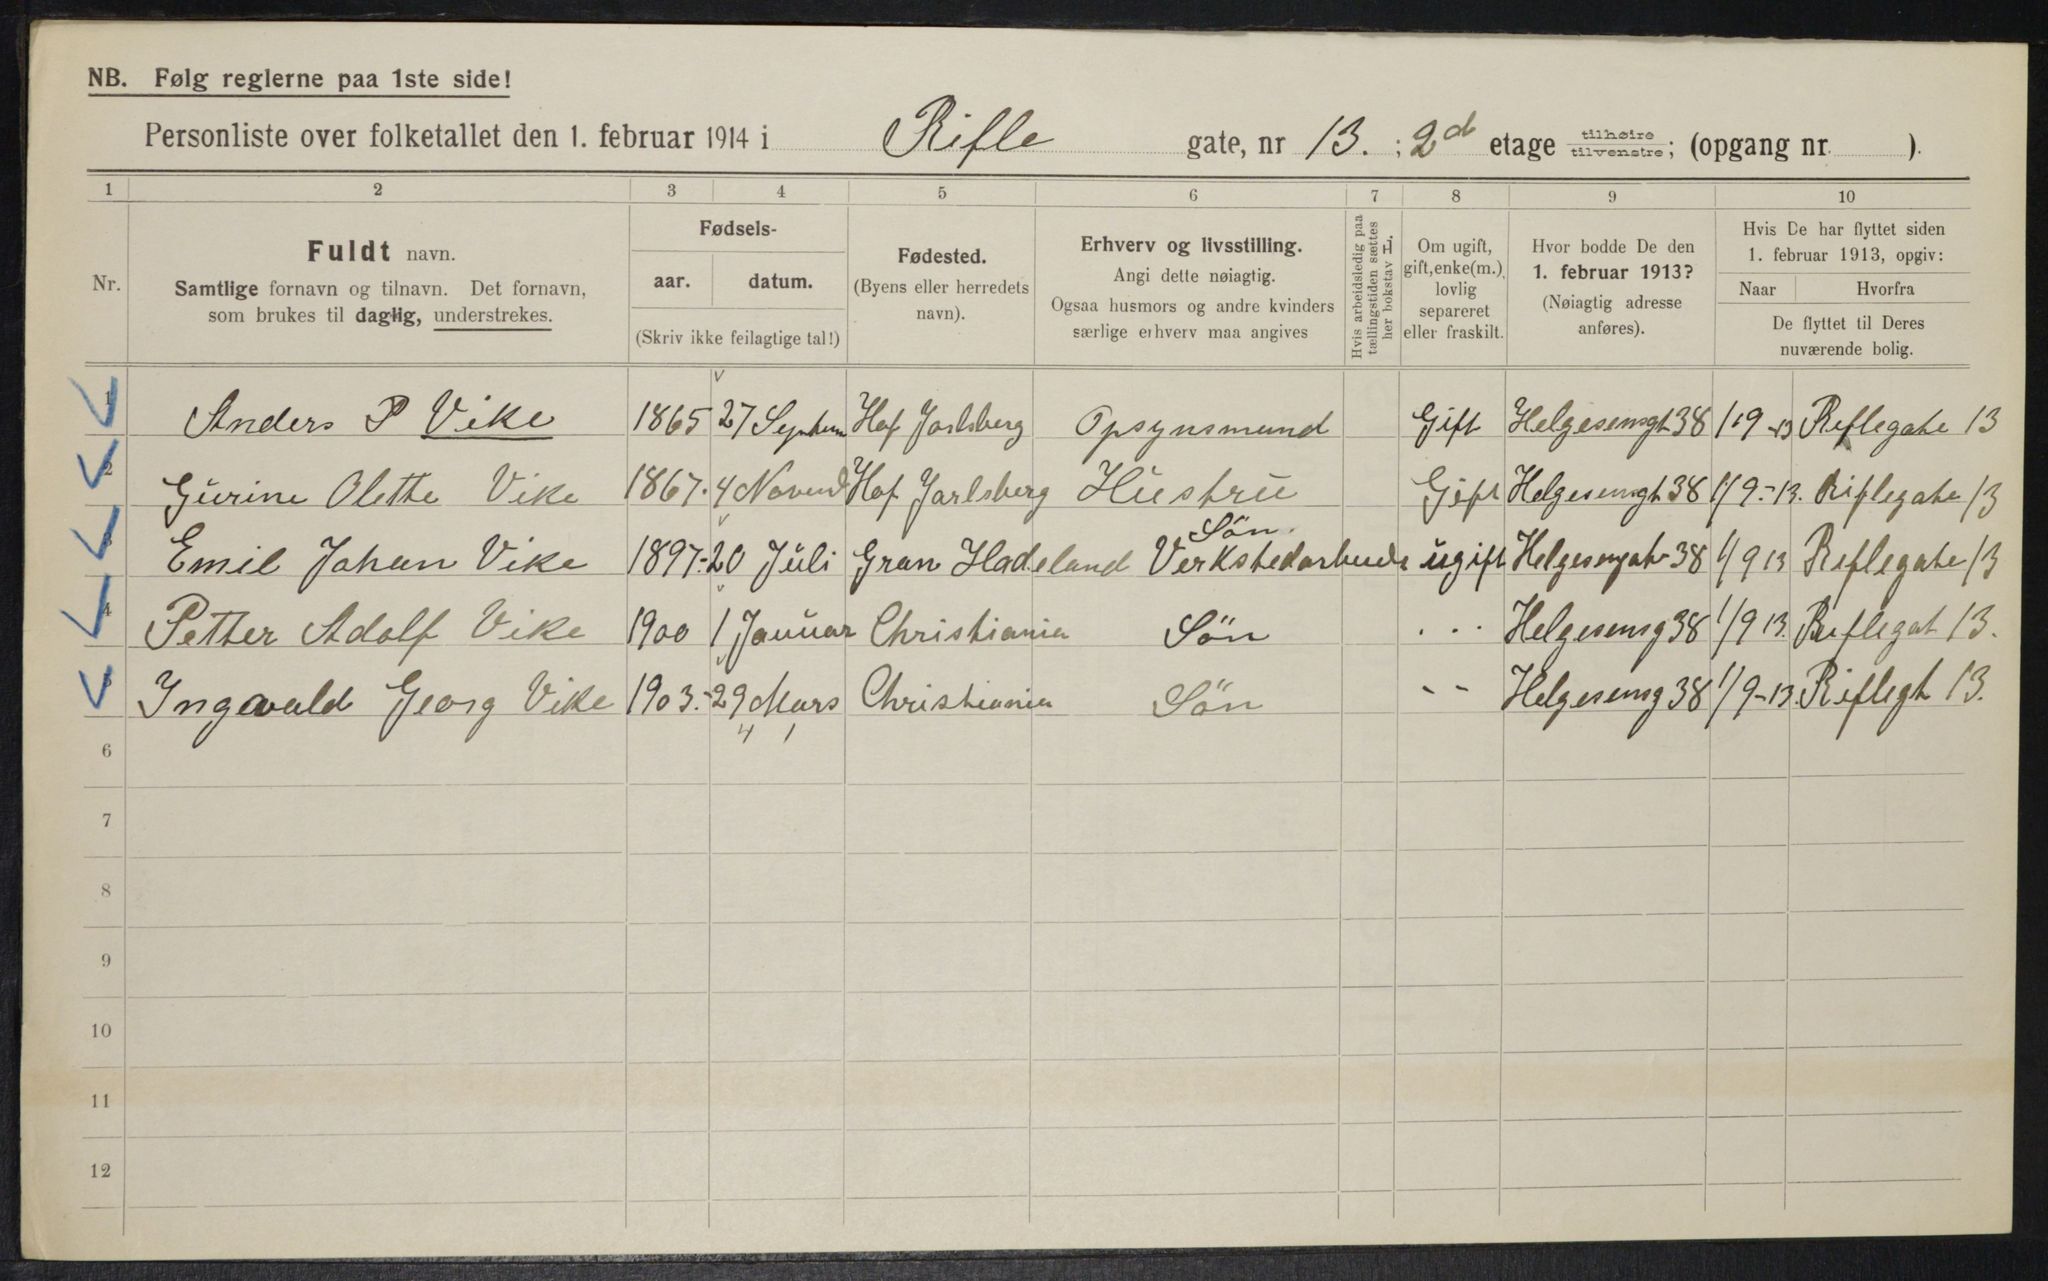 NB. Følg reglerne paa 1ste side!
Personliste over folketallet den 1. februar 1914 i Rifle gate, nr 13. ; 2d etage tilhøire tilvenstre; (opgang nr ).
1 2 3 4 5 6 7 8 9 10
Nr.
Fuldt navn.
Samtlige fornavn og tilnavn. Det fornavn,
som brukes til daglig, understrekes.
Fødsels-
aar. datum.
(Skriv ikke feilagtige tal!)
Fødested.
(Byens eller herredets
navn).
Erhverv og livsstilling.
Angi dette nøiagtig.
Ogsaa husmors og andre kvinders
særlige erhverv maa angives
Hvis arbeidsledig paa
tællingstiden sættes
her bokstav L.
Om ugift,
gift, enke(m.),
lovlig
separeret
eller fraskilt.
Hvor bodde De den
1. februar 1913?
(Nøiagtig adresse
anføres).
Hvis De har flyttet siden
1. februar 1913, opgiv:
Naar Hvorfra
De flyttet til Deres
nuværende bolig.
1 Anders P Vike 1865 27 Septem Hof Jarlsberg Opsynsmand Gift Helgesensgt 38 1/9-13 Riflegate 13
2 Gurine Olette Vike 1867. 4 Novemb Hof Jarlsberg Hustru Gift Helgesensgt 38 1/9-13. Riflegate 13
Sön.
3 Emil Johan Vike 1897-20 Juli Gran Hadeland Verkstedarbeide ugift Helgesengate 38 1/9 13 Riflegate 13
4 Petter Adolf Vike 1900 1 Januar Christiania Sön . . . Helgesensg 38 1/9 13. Riflegat 13.
5 Ingvald Georg Vike 1903.-29 Mars Christiania Sön - - Helgesensg 38 1/9-13. Riflegt 13.
4 1
6
7
8
9
10
11
12